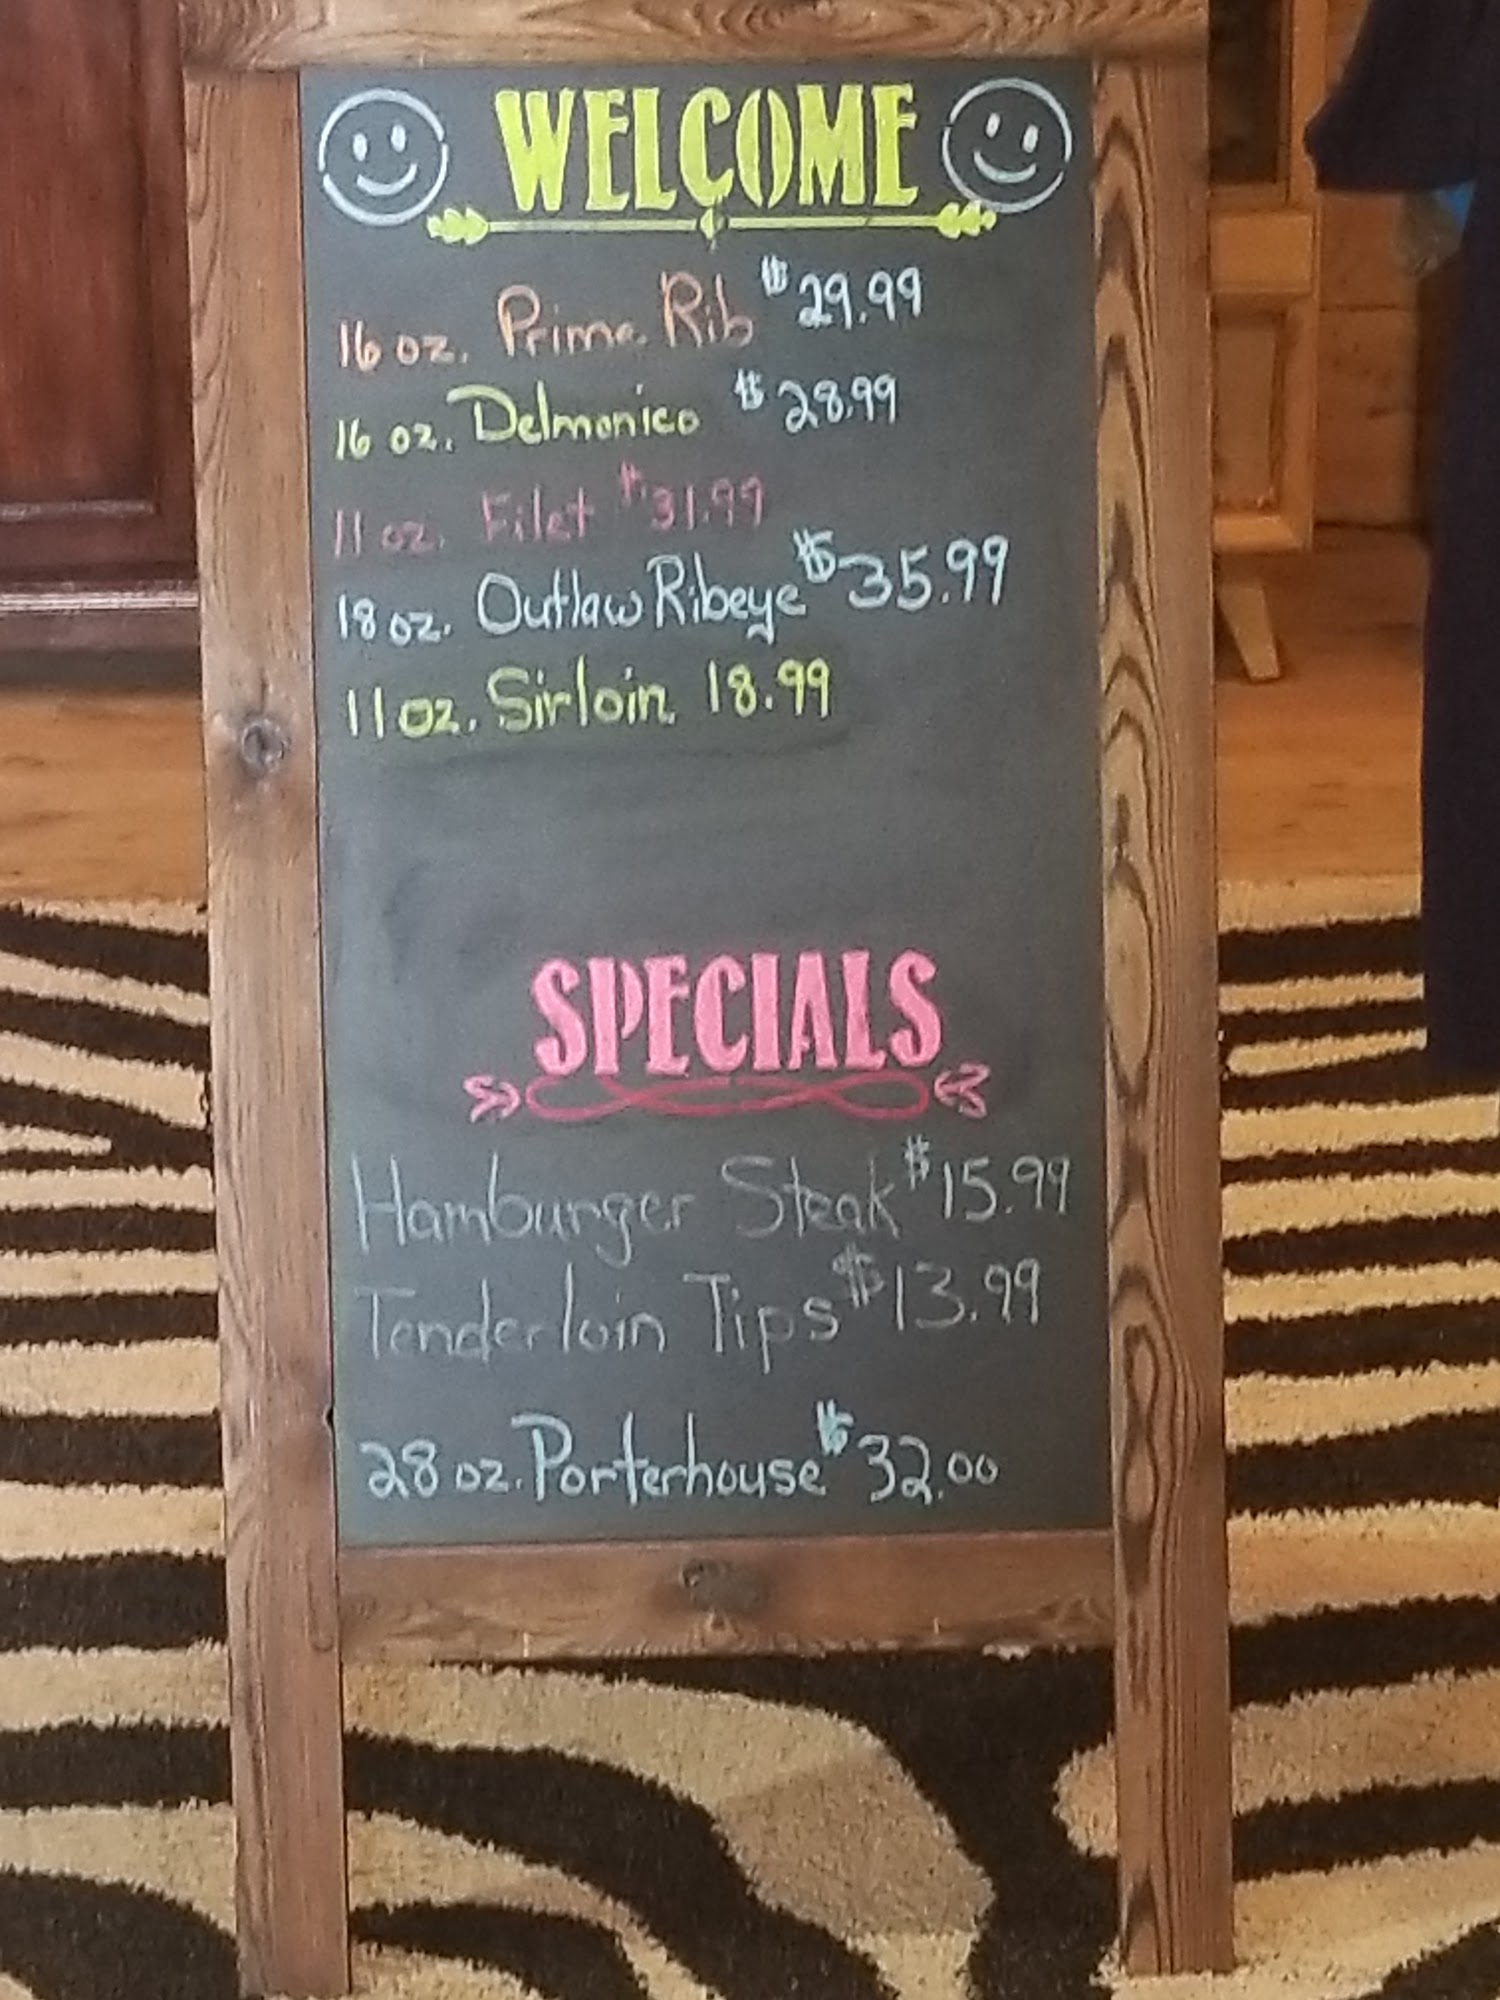 WELCOME
16 oz. Prime Rib $29.99
16 oz. Delmonico $28.99
11 oz. Filet $31.99
18 oz. Outlaw Ribeye $35.99
11 oz. Sirloin 18.99
SPECIALS
Hamburger Steak $15.99
Tenderloin Tips $13.99
28 oz. Porterhouse $32.00